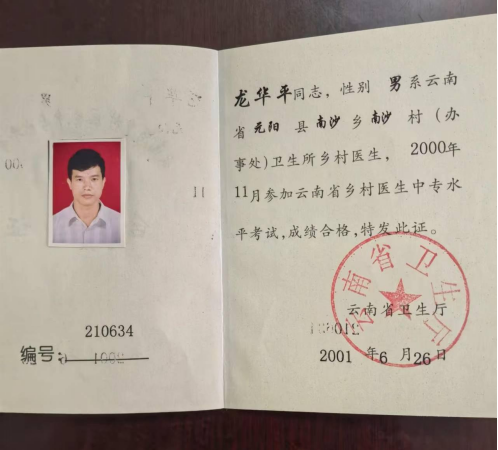 210634
编号:
龙华平同志，性别 男系云南
省元阳县南沙乡南沙村（办
事处)卫生所乡村医生，2000年
11月参加云南省乡村医生中专水
平考试,成绩合格,特发此证。
云南省卫生厅
云南省卫生厅
2001 年6月26日